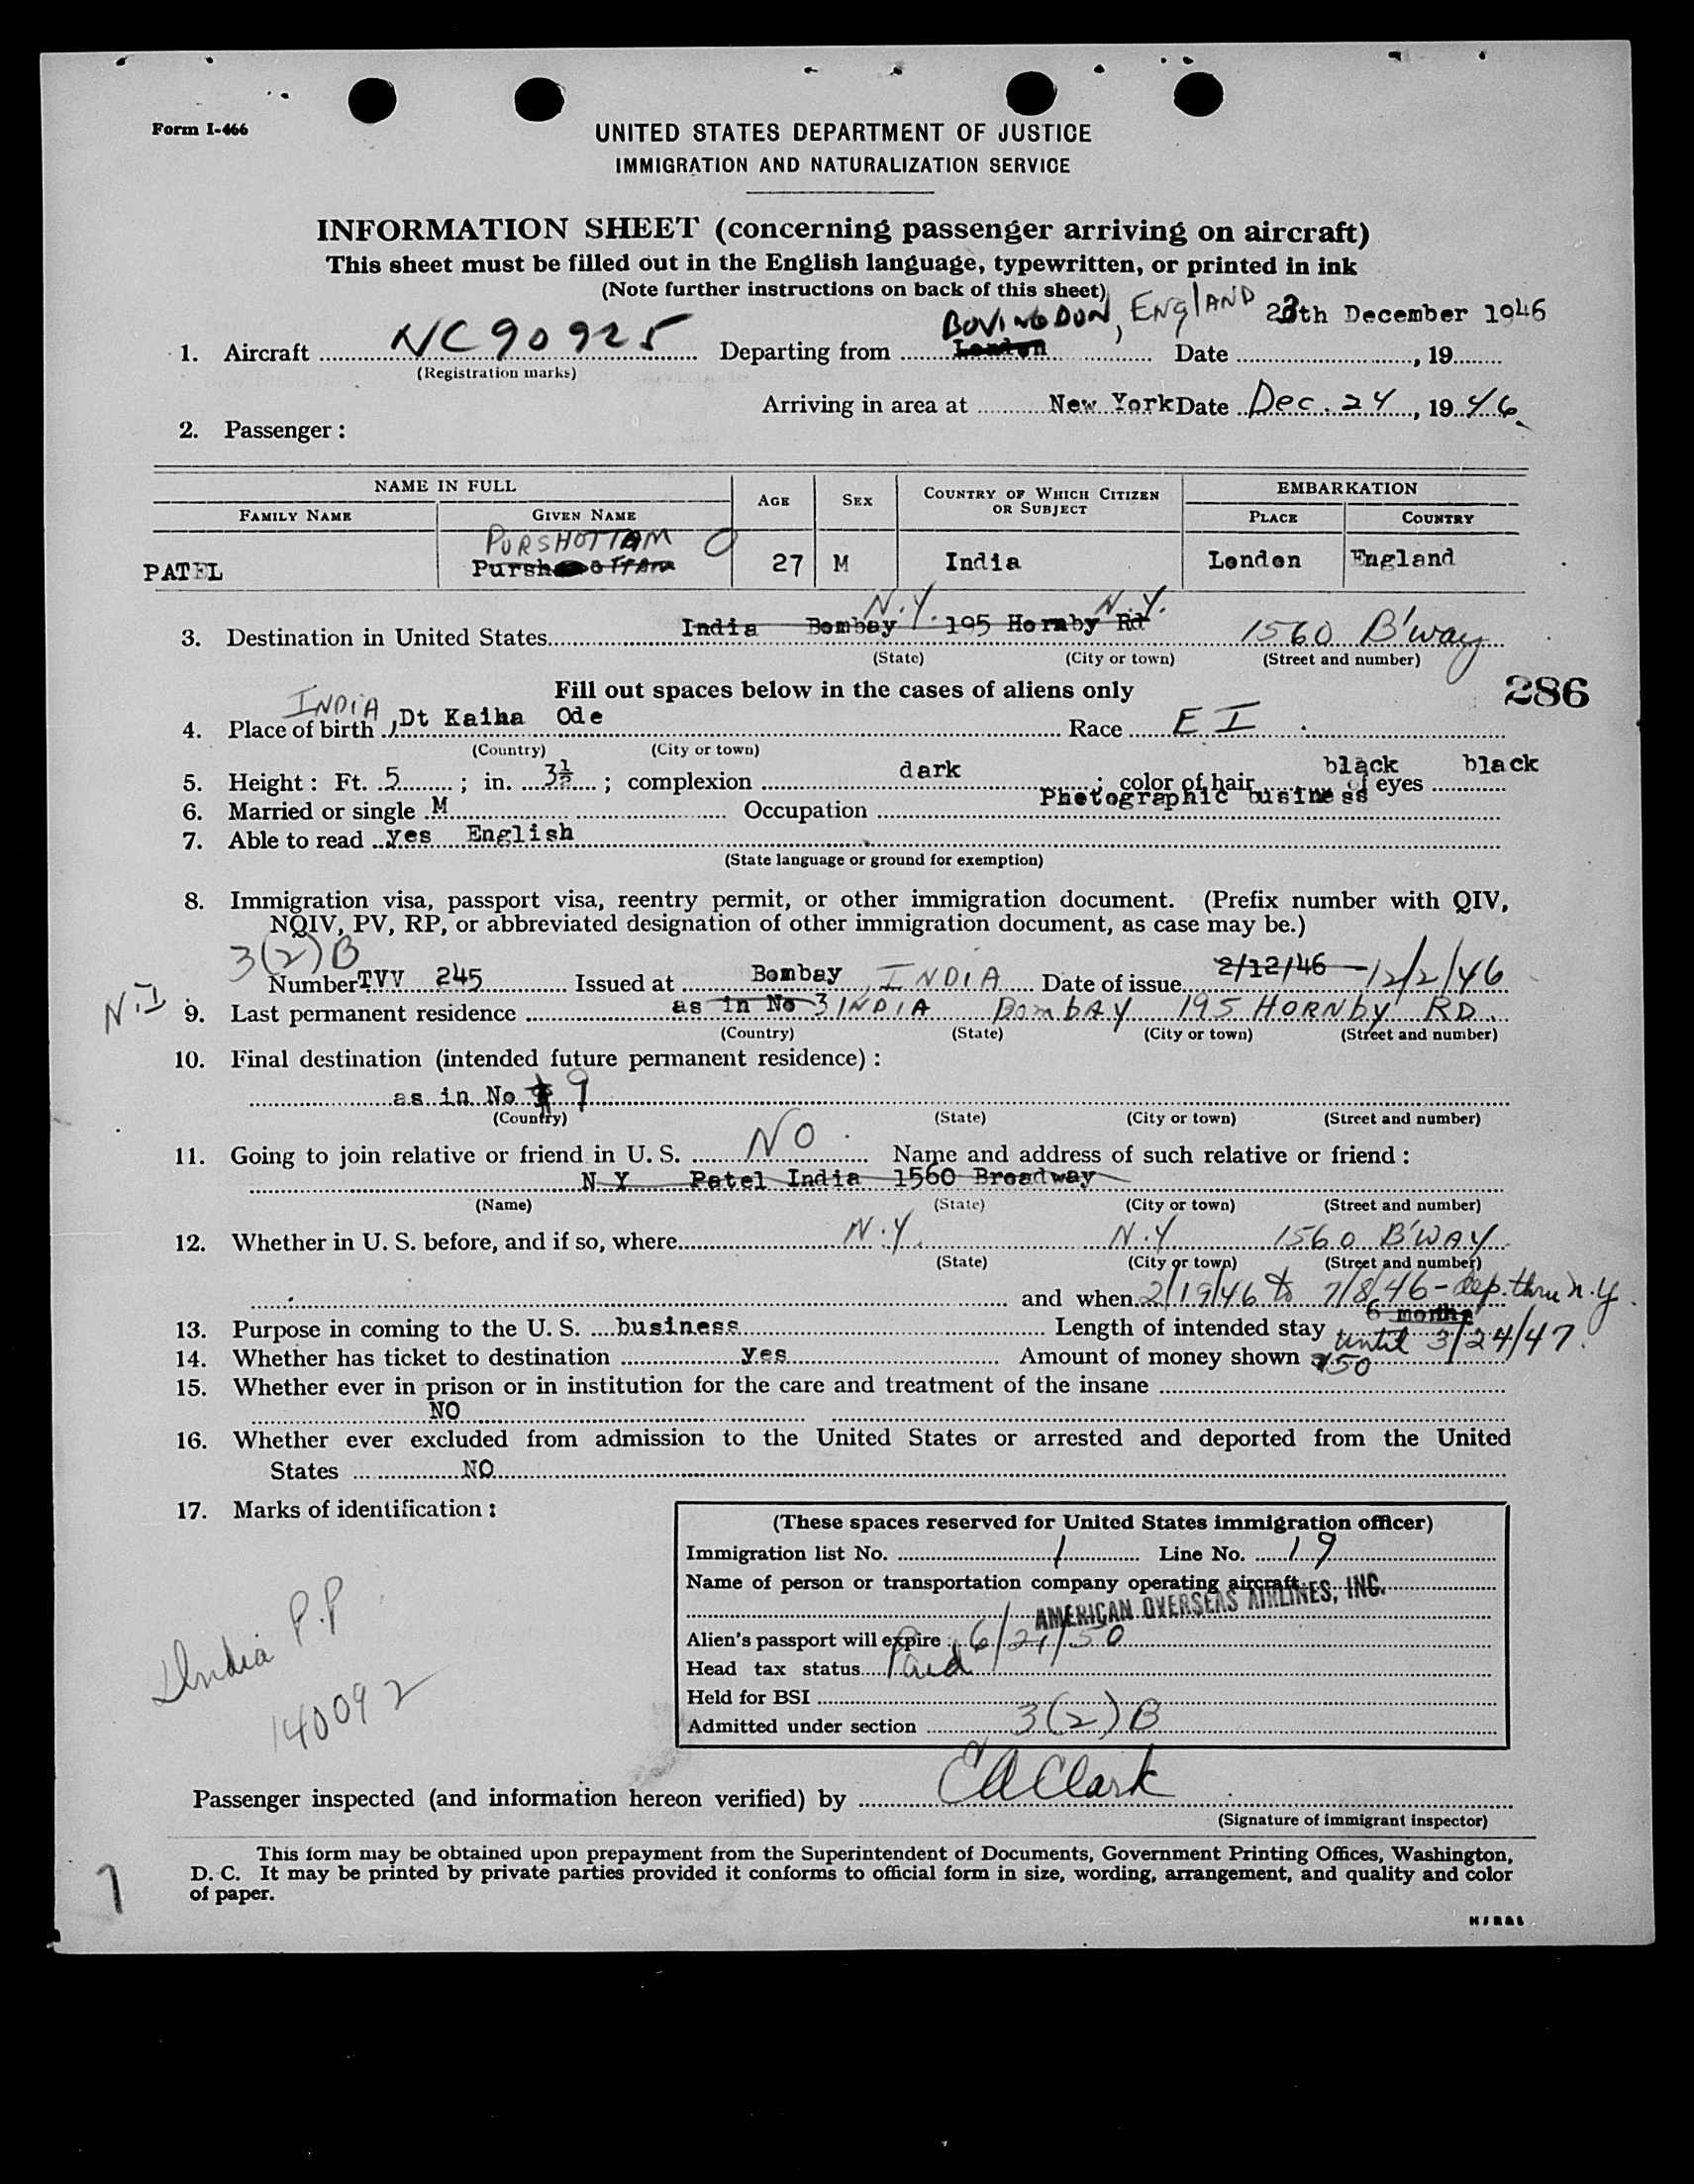 Form I-466
UNITED STATES DEPARTMENT OF JUSTICE
IMMIGRATION AND NATURALIZATION SERVICE
INFORMATION SHEET (concerning passenger arriving on aircraft)
This sheet must be filled out in the English language, typewritten, or printed in ink
(Note further instructions on back of this sheet)
BOVINGDON, ENGLAND 23th December 1946
1. Aircraft NC90925 Departing from London Date , 19
(Registration marks)
Arriving in area at New York Date Dec. 24, 1946
2. Passenger:
NAME IN FULL AGE SEX COUNTRY OF WHICH CITIZEN OR SUBJECT EMBARKATION
FAMILY NAME GIVEN NAME PLACE COUNTRY
PURSHOTTAM
PATEL 27 M India London England
N.Y. N.Y.
3. Destination in United States India Bombay 195 Hornby Rd 1560 B'way
(State) (City or town) (Street and number)
Fill out spaces below in the cases of aliens only
286
INDIA
4. Place of birth, Dt Kaiha Ode Race E I
(Country) (City or town)
5. Height: Ft. 5; in. 3½; complexion dark; color of hair black of eyes black
6. Married or single M Occupation Photographic business
7. Able to read yes English
(State language or ground for exemption)
8. Immigration visa, passport visa, reentry permit, or other immigration document. (Prefix number with QIV,
NQIV, PV, RP, or abbreviated designation of other immigration document, as case may be.)
3(2)B
Number TVV 245 Issued at Bombay, INDIA Date of issue 2/12/46 - 12/2/46
N.I. 9. Last permanent residence as in No 3 INDIA Bombay 195 HORNby RD.
(Country) (State) (City or town) (Street and number)
10. Final destination (intended future permanent residence):
as in No 9
(Country) (State) (City or town) (Street and number)
11. Going to join relative or friend in U. S. NO. Name and address of such relative or friend:
N Y Patel India 1560 Broadway
(Name) (State) (City or town) (Street and number)
12. Whether in U. S. before, and if so, where N.Y. N.Y 1560 B'WAY
(State) (City or town) (Street and number)
and when 2/19/46 to 7/8/46 - dep. thru N.Y.
13. Purpose in coming to the U. S. business Length of intended stay 6 months until 3/24/47.
14. Whether has ticket to destination yes Amount of money shown 50
15. Whether ever in prison or in institution for the care and treatment of the insane
NO
16. Whether ever excluded from admission to the United States or arrested and deported from the United
States NO
17. Marks of identification:
India P.P
140092
(These spaces reserved for United States immigration officer)
Immigration list No. 1 Line No. 19
Name of person or transportation company operating aircraft
AMERICAN OVERSEAS AIRLINES, INC.
Alien's passport will expire 6/21/50
Head tax status Paid
Held for BSI
Admitted under section 3(2)B
Passenger inspected (and information hereon verified) by C A Clark
(Signature of immigrant inspector)
This form may be obtained upon prepayment from the Superintendent of Documents, Government Printing Offices, Washington,
D. C. It may be printed by private parties provided it conforms to official form in size, wording, arrangement, and quality and color
of paper.